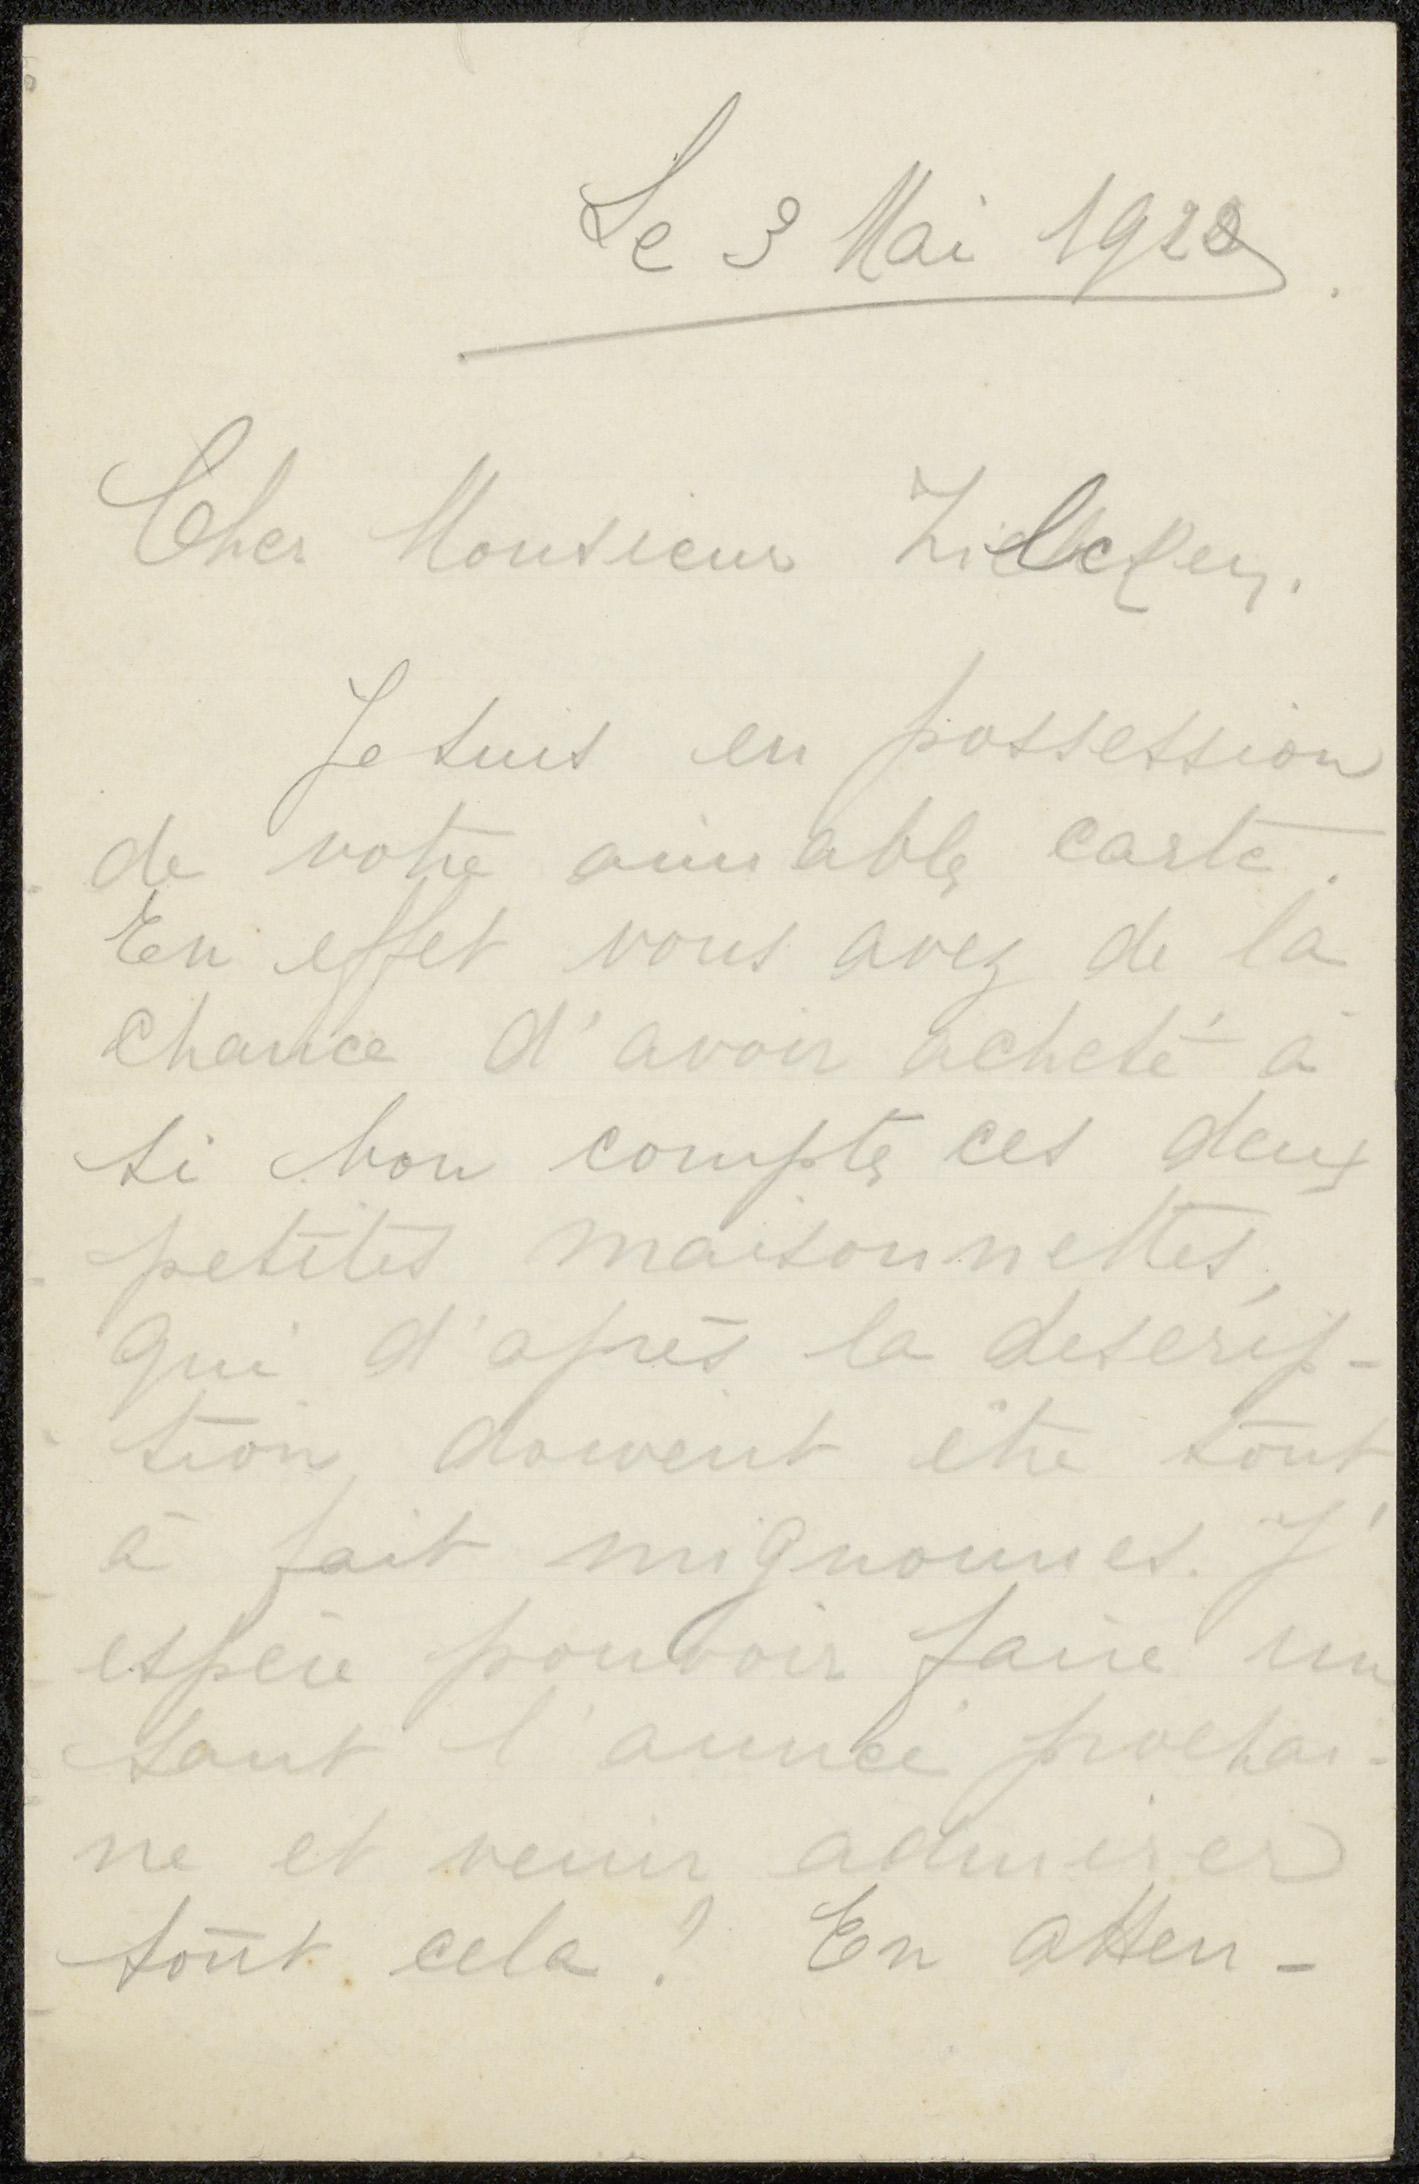 Le 3 Mai 1922.
Cher Monsieur Zilcken.
Je suis en possession
de votre aimable carte.
En effet vous avez de la
chance d'avoir acheté à
si bon compte ces deux
petites maisonnettes,
qui d'après la descrip-
tion, doivent être tout
à fait mignonnes. J'
espère pouvoir faire un
saut l'année prochai-
ne et venir admirer
tout cela! En atten-